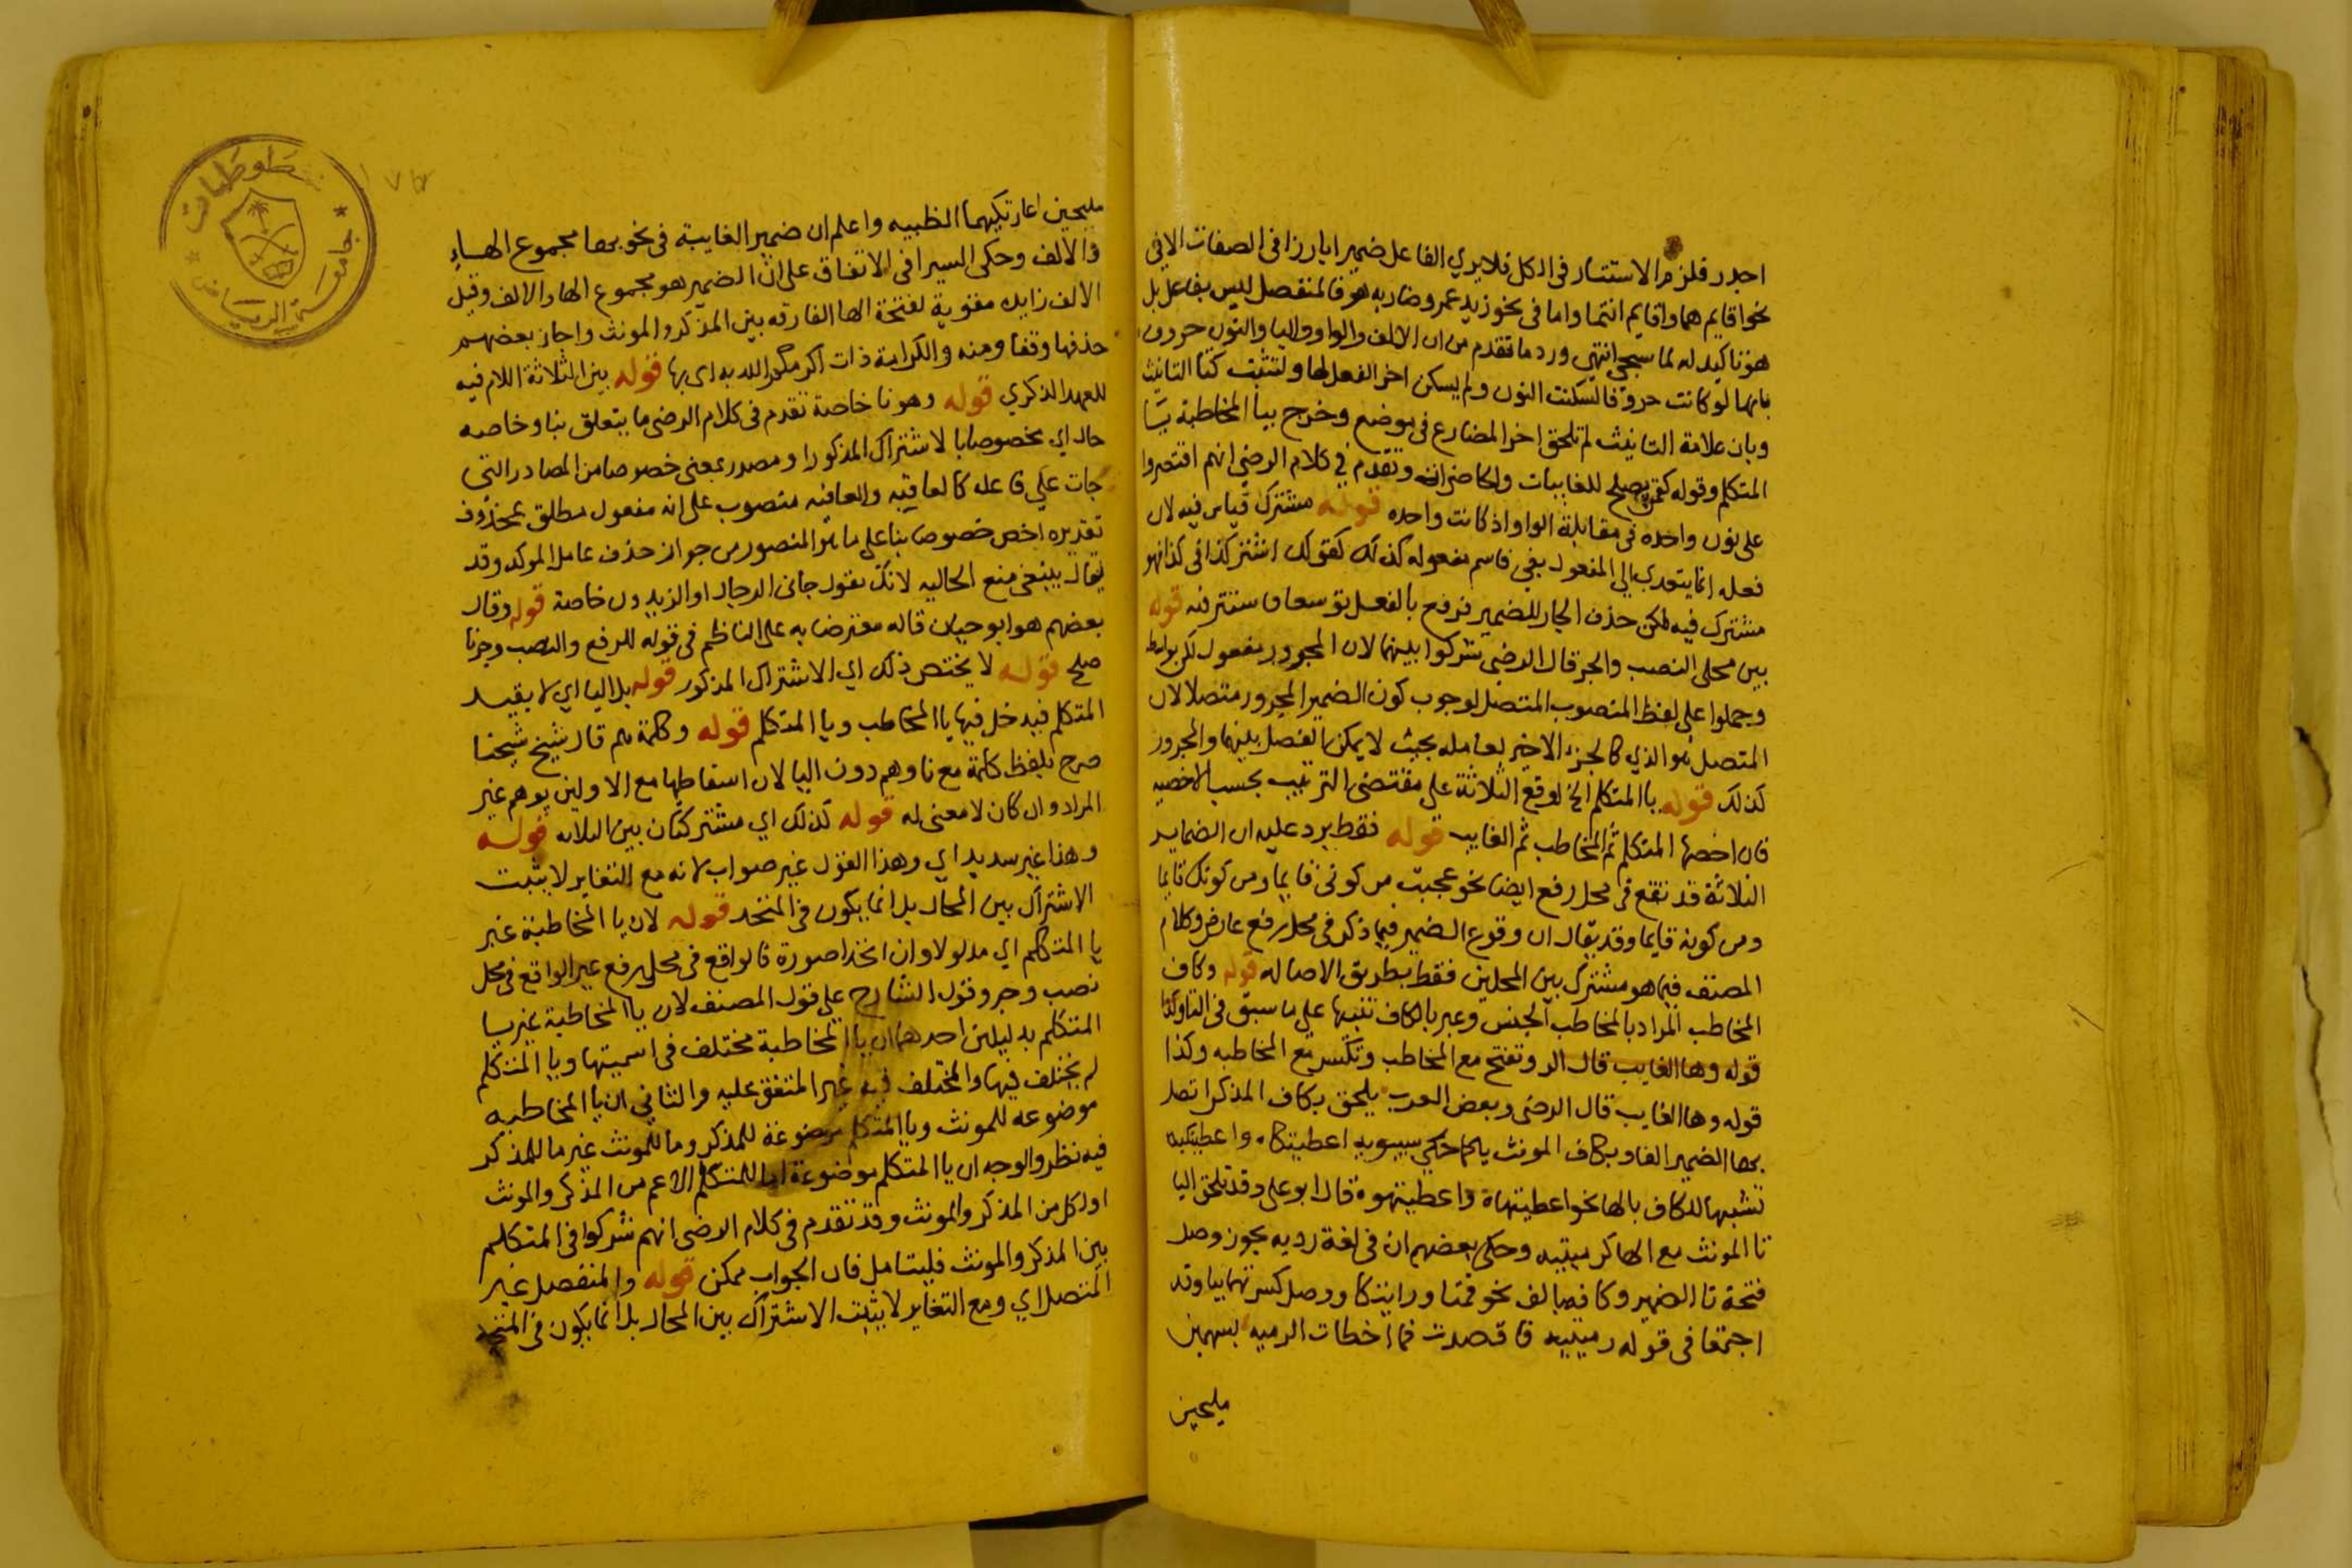 اجدر فلزم الاستتار فى الكل فلا يري الفاعل ضميرا بارزا فى الصفات الا فى
نحو اقايم هما واقايم انتما واما فى نحو زيد عمرو ضاربه هو فالمنفصل ليس بفاعل بل
هو تاكيد له لما سيجي انتهي ورد ما تقدم من ان الالف والواو واليا والنون حروف
بانها لو كانت حروفا لسكنت النون ولم يسكن اخر الفعل لها ولثبتت كتا التانيث
وبان علامة التانيث لم تلحق اخر المضارع فى موضع وخرج بيا المخاطبة يا
المتكلم وقوله كقمن يصلح للغايبات والحاضرات وتقدم في كلام الرضى انهم اقتصروا
على نون واحده فى مقابلة الواو اذ كانت واحده قوله مشترك قياس فيه لان
فعله انما يتعدي الى المفعول بفى فاسم مفعوله كذلك كقولك اشترك كذا فى كذا فهو
مشترك فيه لكن حذف الجار للضمير فرفع بالفعل توسعا فاستتر فيه قوله
بين محلى النصب والجر قال الرضى شركوا بينهما لان المجرور مفعول لكن بواسطه
وحملوا على لفظ المنصوب المتصل لوجوب كون الضمير المجرور متصلا لان
المتصل هو الذي كالجزء الاخير لعامله بحيث لا يمكن الفصل بينهما والمجرور
كذلك قوله يا المتكلم الخ اوقع الثلاثة على مقتضى الترتيب بحسب الاخصيه
فان اخصها المتكلم ثم المخاطب ثم الغايب قوله فقط يرد عليه ان الضماير
الثلاثة قد تقع فى محل رفع ايضا نحو عجبت من كونى قايما ومن كونك قايما
ومن كونه قايما وقد يقال ان وقوع الضمير فيما ذكر فى محل رفع عارض وكلام
المصنف فيما هو مشترك بين المحلين فقط بطريق الاصاله قوله وكاف
المخاطب المراد بالمخاطب الجنس وعبر بالكاف تنبيها على ما سبق فى التا وكذا
قوله وها الغايب قال الر وتفتح مع المخاطب وتكسر مع المخاطبه وكذا
قوله وها الغايب قال الرضى وبعض العرب يلحق بكاف المذكر اتصل
بها الضمير الفا وبكاف المونث يا كما حكى سيبويه اعطيتكاه واعطيتكيه
تشبيها للكاف بالها نحو اعطيتهاه واعطيتهوه قال ابو على وقد تلحق اليا
تا المونث مع الها كرميتيه وحكى بعضهم ان فى لغة رديه يجوز وصل
فتحة تا الضمير وكافه بالف نحو قمتا ورايتكا ووصل كسرتهما بيا وقد
اجتمعا فى قوله رميتيه فاقصدت فما اخطات الرميه بسهمين
مليحين
مليحين اعارتكيهما الظبيه واعلم ان ضمير الغايبة فى نحو بها مجموع الهاء
والالف وحكى السيرافى الاتفاق على ان الضمير هو مجموع الها والالف وقيل
الالف زايده مقوية لفتحة الها الفارقه بين المذكر والمونث واجاز بعضهم
حذفها وقفا ومنه والكرامة ذات اكرمكم الله به اى بها قوله بين الثلاثة اللام فيه
للعهد الذكري قوله وهو نا خاصة تقدم فى كلام الرضى ما يتعلق بنا وخاصه
حال اي مخصوصا بالاشتراك المذكور او مصدر بمعنى خصوصا من المصادر التى
جات علي فاعله كالعاقبه والعافيه منصوب على انه مفعول مطلق بمحذوف
تقديره اخص خصوصا بنا على ما هو المنصور من جواز حذف عامل الموكد وقد
يقال ينبغى منع الحاليه لانك تقول جانى الرجال او الزيدون خاصة قوله وقال
بعضهم هو ابو حيان قاله معترضا به على الناظم فى قوله للرفع والنصب وجرنا
صلح قوله لا يختص ذلك اي الاشتراك المذكور قوله بل اليا اي لا بقيد
المتكلم فيدخل فيها يا المخاطب ويا المتكلم قوله وكلمة هم قال شيخ شيخنا
صرح بلفظ كلمة مع نا وهم دون اليا لان اسقاطها مع الاولين يوهم غير
المراد وان كان لا معنى له قوله كذلك اي مشتركتان بين الثلاثه قوله
وهذا غير سديد اي وهذا القول غير صواب لانه مع التغاير لا يثبت
الاشتراك بين المحال بل انما يكون فى المتحد قوله لان يا المخاطبة غير
يا المتكلم اي مدلولا وان اتحدا صورة فالواقع فى محل رفع غير الواقع فى محل
نصب وجر وقول الشارح علي قول المصنف لان يا المخاطبة غير يا
المتكلم بدليلين احدهما ان يا المخاطبة مختلف فى اسميتها ويا المتكلم
لم يختلف فيها والمختلف فيه غير المتفق عليه والثانى ان يا المخاطبه
موضوعه للمونث ويا المتكلم موضوعة للمذكر وما للمونث غير ما للمذكر
فيه نظر والوجه ان يا المتكلم موضوعة اما للمتكلم الاعم من المذكر والمونث
او لكل من المذكر والمونث وقد تقدم فى كلام الرضى انهم شركوا فى المتكلم
بين المذكر والمونث فليتامل فان الجواب ممكن قوله والمنفصل غير
المتصل اي ومع التغاير لا يثبت الاشتراك بين المحال بل انما يكون فى المتحد
جامعة الرياض
مخطوطات